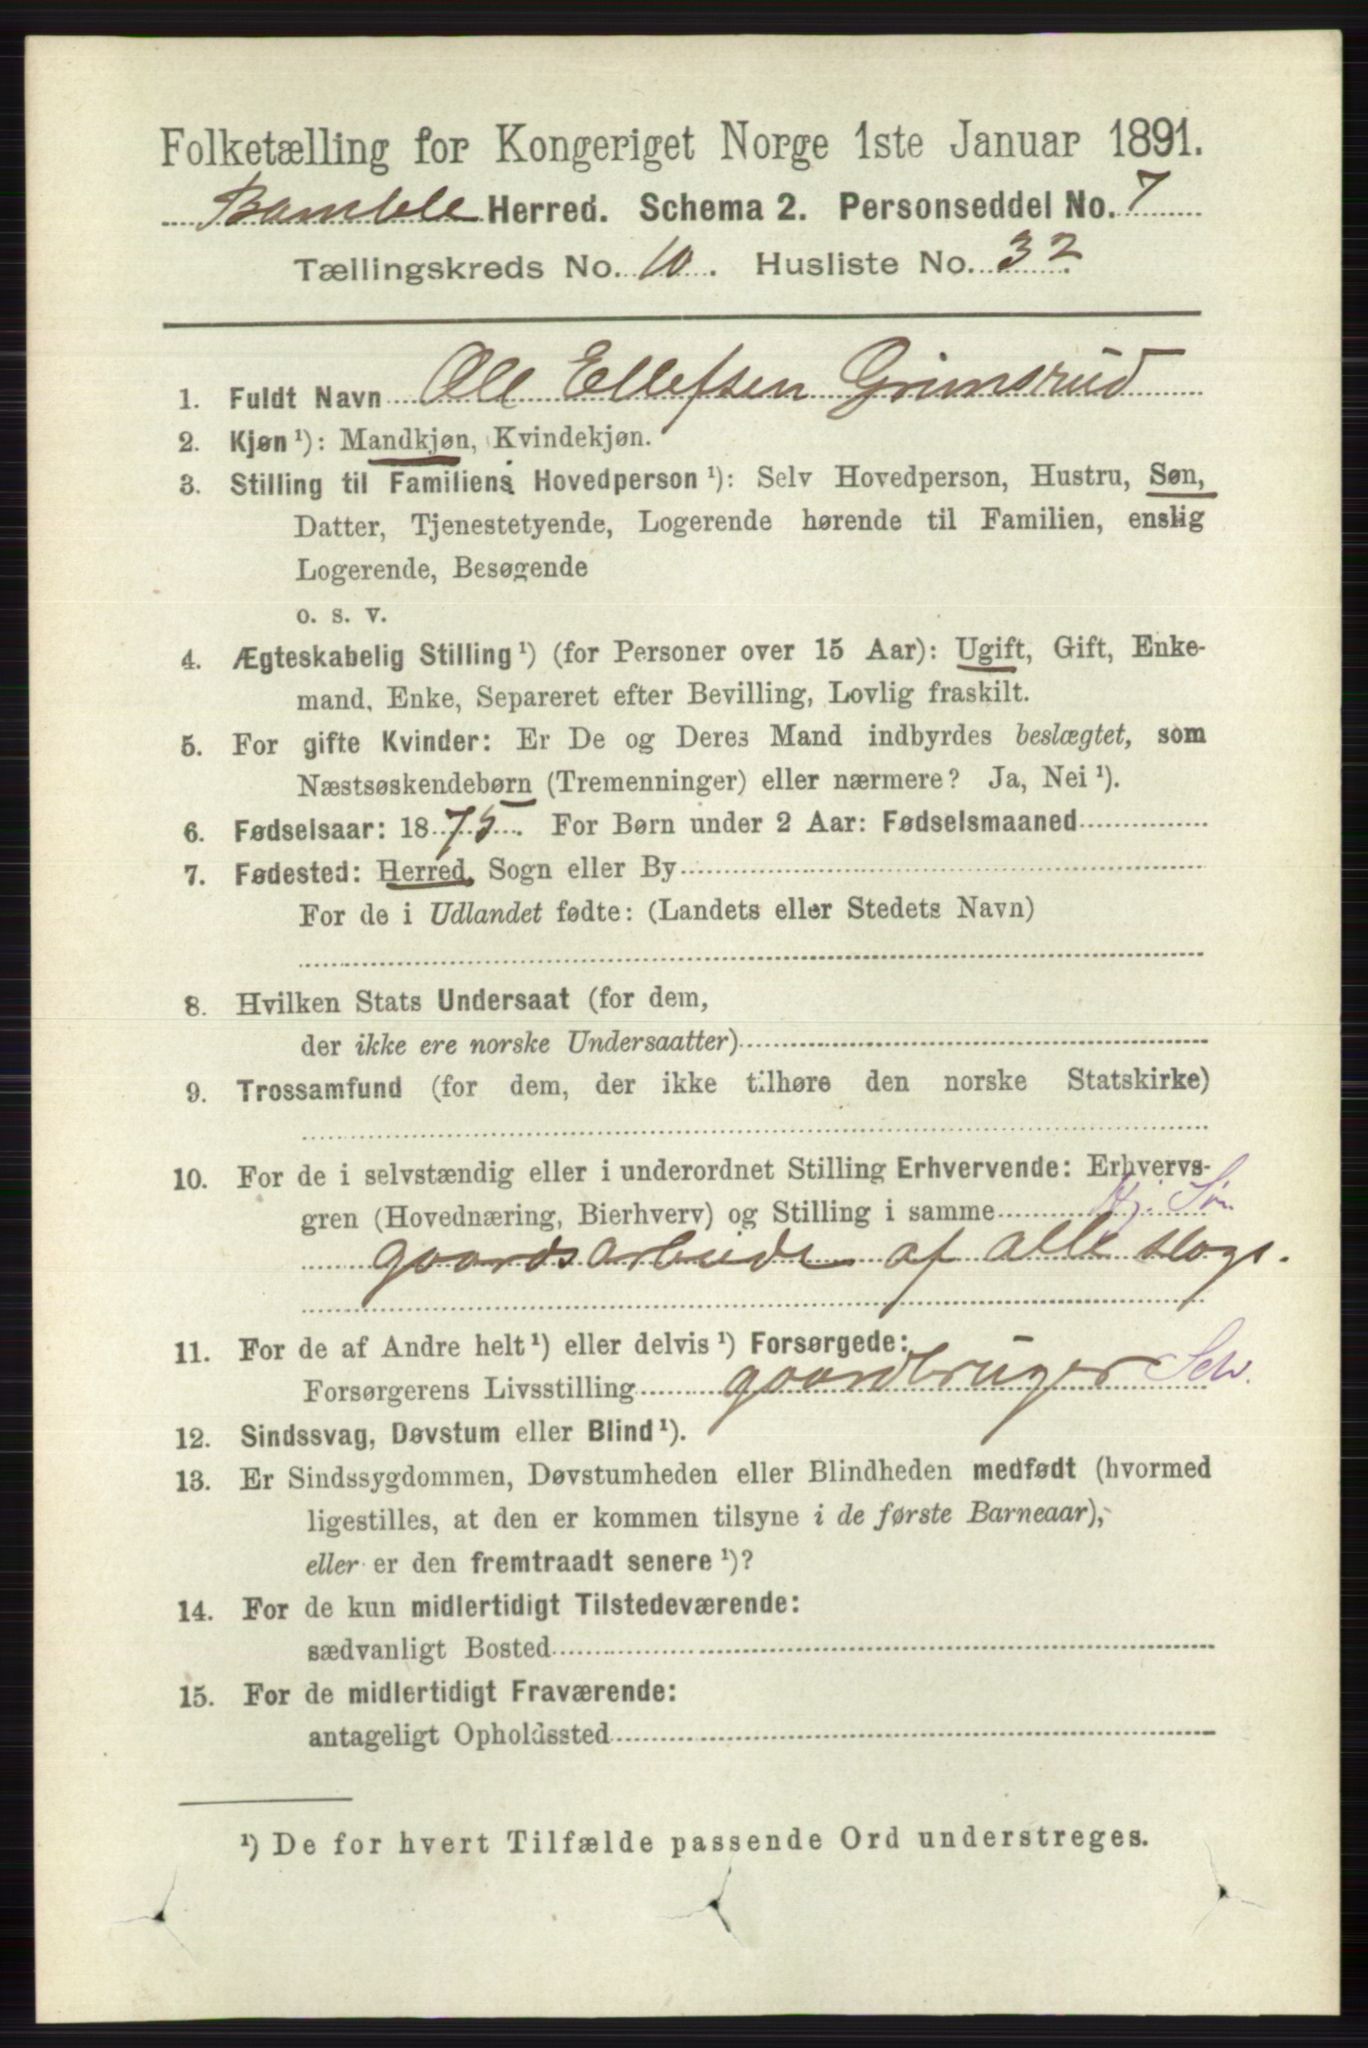 Folketælling for Kongeriget Norge 1ste Januar 1891.
Bamble Herred. Schema 2. Personseddel No. 7
Tællingskreds No. 10. Husliste No. 32
1. Fuldt Navn Ole Ellefsen Grimsrud
2. Kjøn ¹): Mandkjøn, Kvindekjøn.
3. Stilling til Familiens Hovedperson ¹): Selv Hovedperson, Hustru, Søn,
Datter, Tjenestetyende, Logerende hørende til Familien, enslig
Logerende, Besøgende
o. s. v.
4. Ægteskabelig Stilling ¹) (for Personer over 15 Aar): Ugift, Gift, Enke-
mand, Enke, Separeret efter Bevilling, Lovlig fraskilt.
5. For gifte Kvinder: Er De og Deres Mand indbyrdes beslægtet, som
Næstsøskendebørn (Tremenninger) eller nærmere? Ja, Nei ¹).
6. Fødselsaar: 1875. For Børn under 2 Aar: Fødselsmaaned
7. Fødested: Herred, Sogn eller By
For de i Udlandet fødte: (Landets eller Stedets Navn)
8. Hvilken Stats Undersaat (for dem,
der ikke ere norske Undersaatter)
9. Trossamfund (for dem, der ikke tilhøre den norske Statskirke)
10. For de i selvstændig eller i underordnet Stilling Erhvervende: Erhvervs-
gren (Hovednæring, Bierhverv) og Stilling i samme Hj. Søn
gaardsarbeide af alle slags.
11. For de af Andre helt ¹) eller delvis ¹) Forsørgede:
Forsørgerens Livsstilling gaardbruger Selv.
12. Sindssvag, Døvstum eller Blind ¹).
13. Er Sindssygdommen, Døvstumheden eller Blindheden medfødt (hvormed
ligestilles, at den er kommen tilsyne i de første Barneaar),
eller er den fremtraadt senere ¹)?
14. For de kun midlertidigt Tilstedeværende:
sædvanligt Bosted
15. For de midlertidigt Fraværende:
antageligt Opholdssted
¹) De for hvert Tilfælde passende Ord understreges.